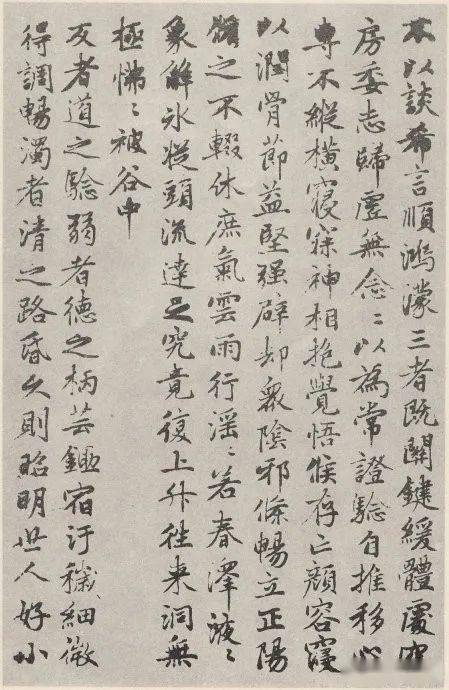 不以談希言順鴻濛三者既關鍵緩體處空
房委志歸虛無念〻以為常證驗自推移心
專不縱橫寢寐神相抱覺悟候存亡顏容寖
以潤骨節益堅强辟却衆陰邪條暢立正陽
脩之不輟休庶氣雲雨行滛〻若春澤液〻
象解氷從頭流達足究竟復上升往来洞無
極怫〻被谷中
反者道之驗弱者德之柄芸鋤宿汙穢細微
得調暢濁者清之路昏久則昭明世人好小